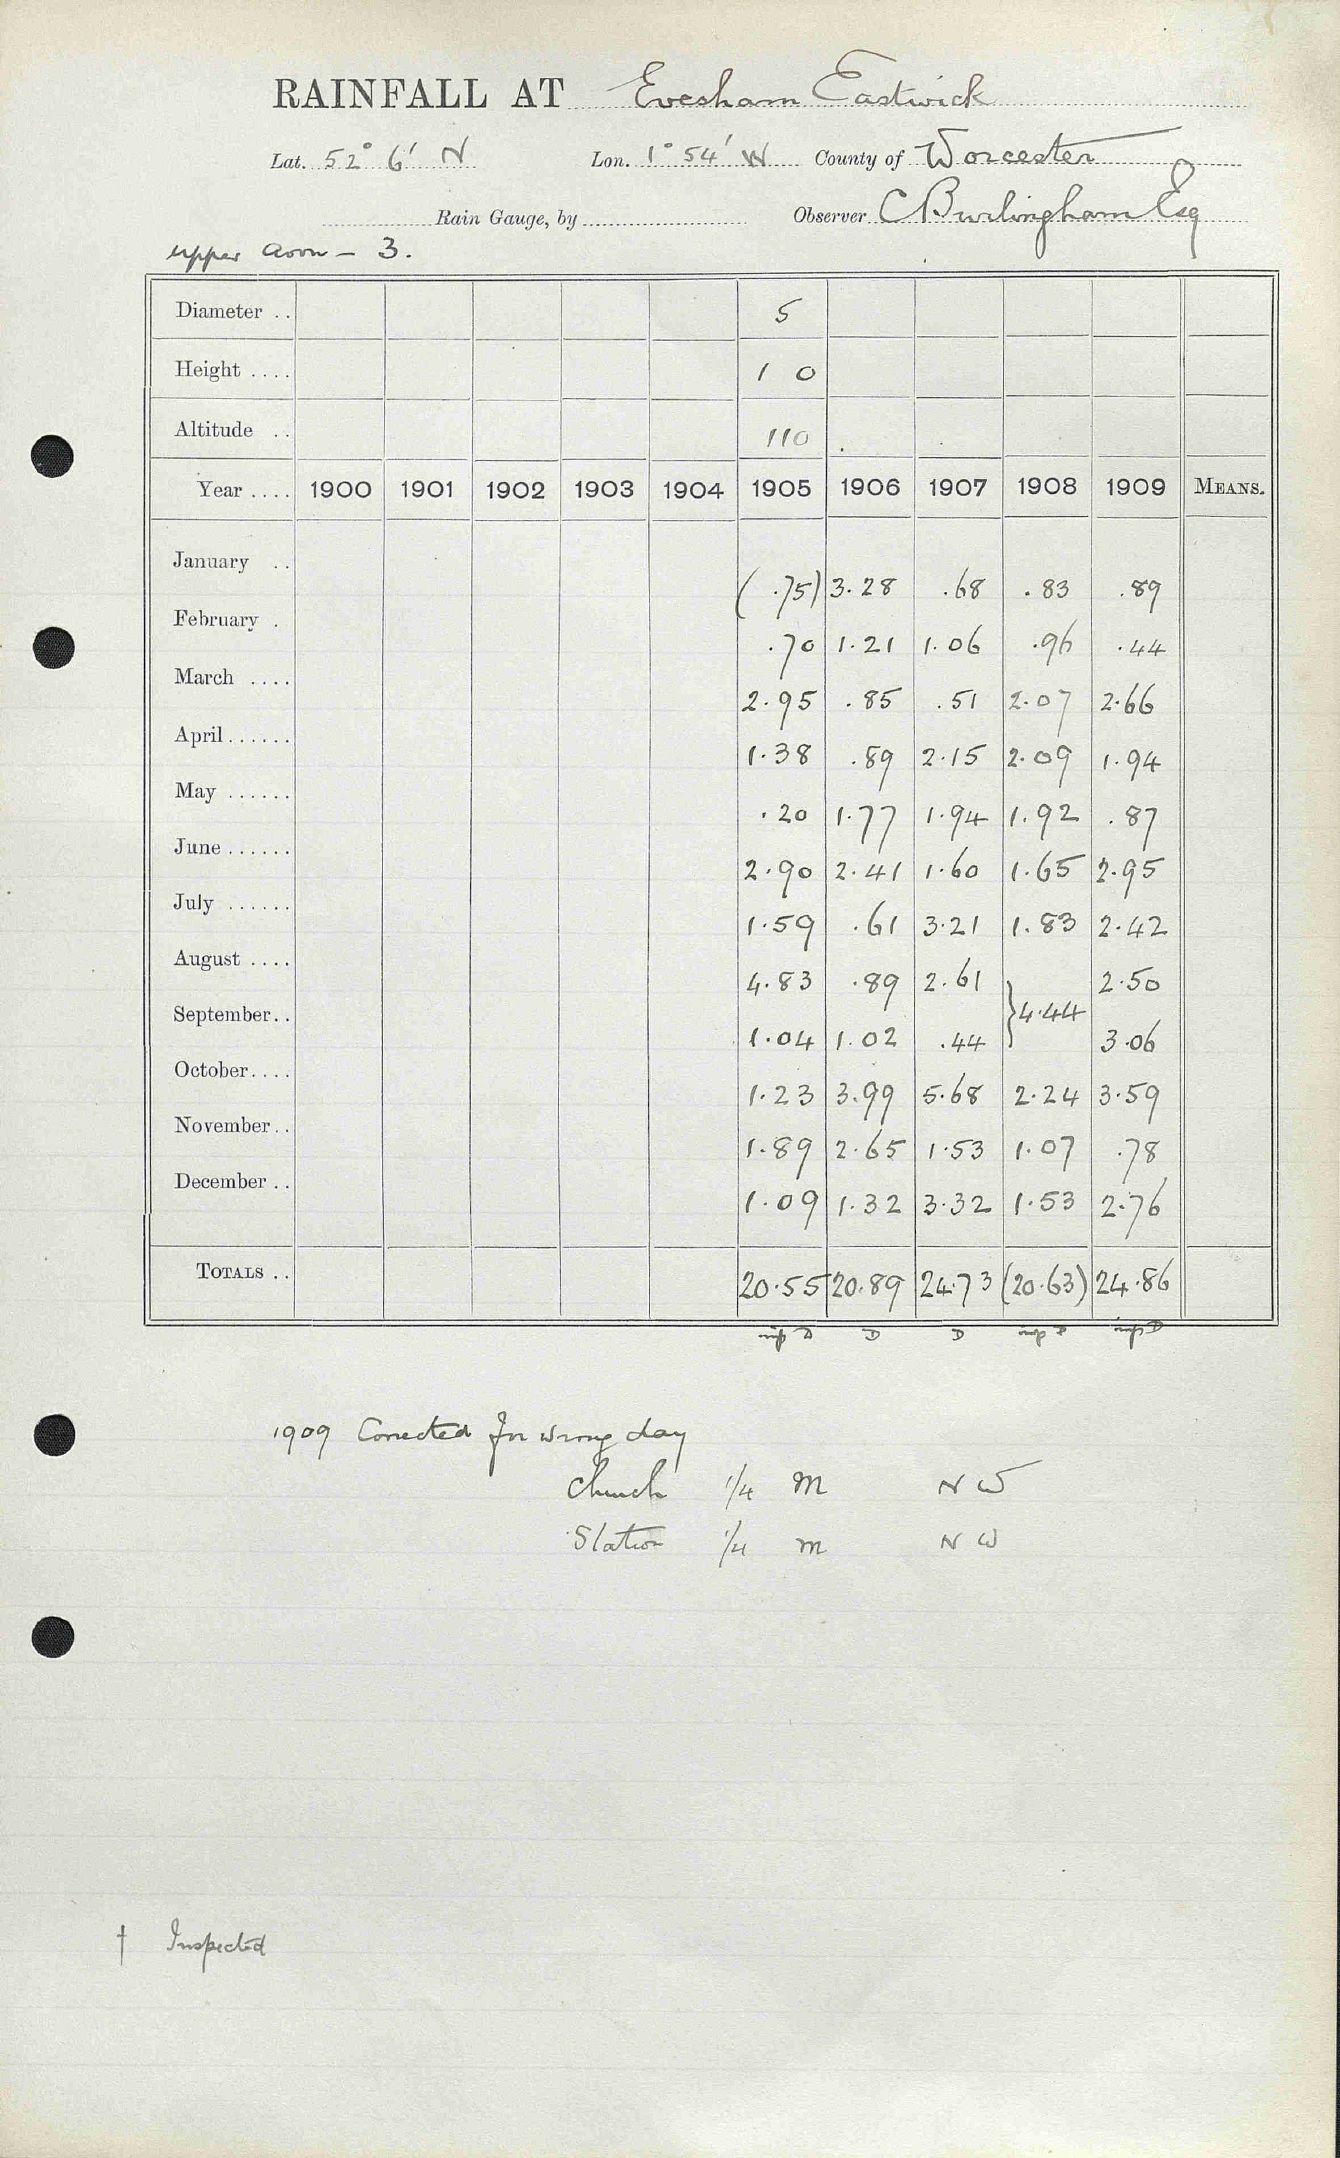 RAINFALL AT Evesham Eastwick
Lat. 52° 6' N Lon. 1° 54' W County of Worcester
Rain Gauge, by Observer C Burlingham Esq
Upper Avon - 3.
Diameter .. 5
Height .... 1 0
Altitude .. 110
Year .... 1900 1901 1902 1903 1904 1905 1906 1907 1908 1909 MEANS.
January .. (.75) 3.28 .68 .83 .89
February . .70 1.21 1.06 .96 .44
March .... 2.95 .85 .51 2.07 2.66
April...... 1.38 .89 2.15 2.09 1.94
May ...... .20 1.77 1.94 1.92 .87
June ...... 2.90 2.41 1.60 1.65 2.95
July ...... 1.59 .61 3.21 1.83 2.42
August .... 4.83 .89 2.61 } 4.44 2.50
September.. 1.04 1.02 .44 3.06
October.... 1.23 3.99 5.68 2.24 3.59
November.. 1.89 2.65 1.53 1.07 .78
December .. 1.09 1.32 3.32 1.53 2.76
TOTALS .. 20.55 20.89 24.73 (20.63) 24.86
D D D
1909 Corrected for wrong day
Church 1/4 M NW
Station 1/4 m NW
† Inspected